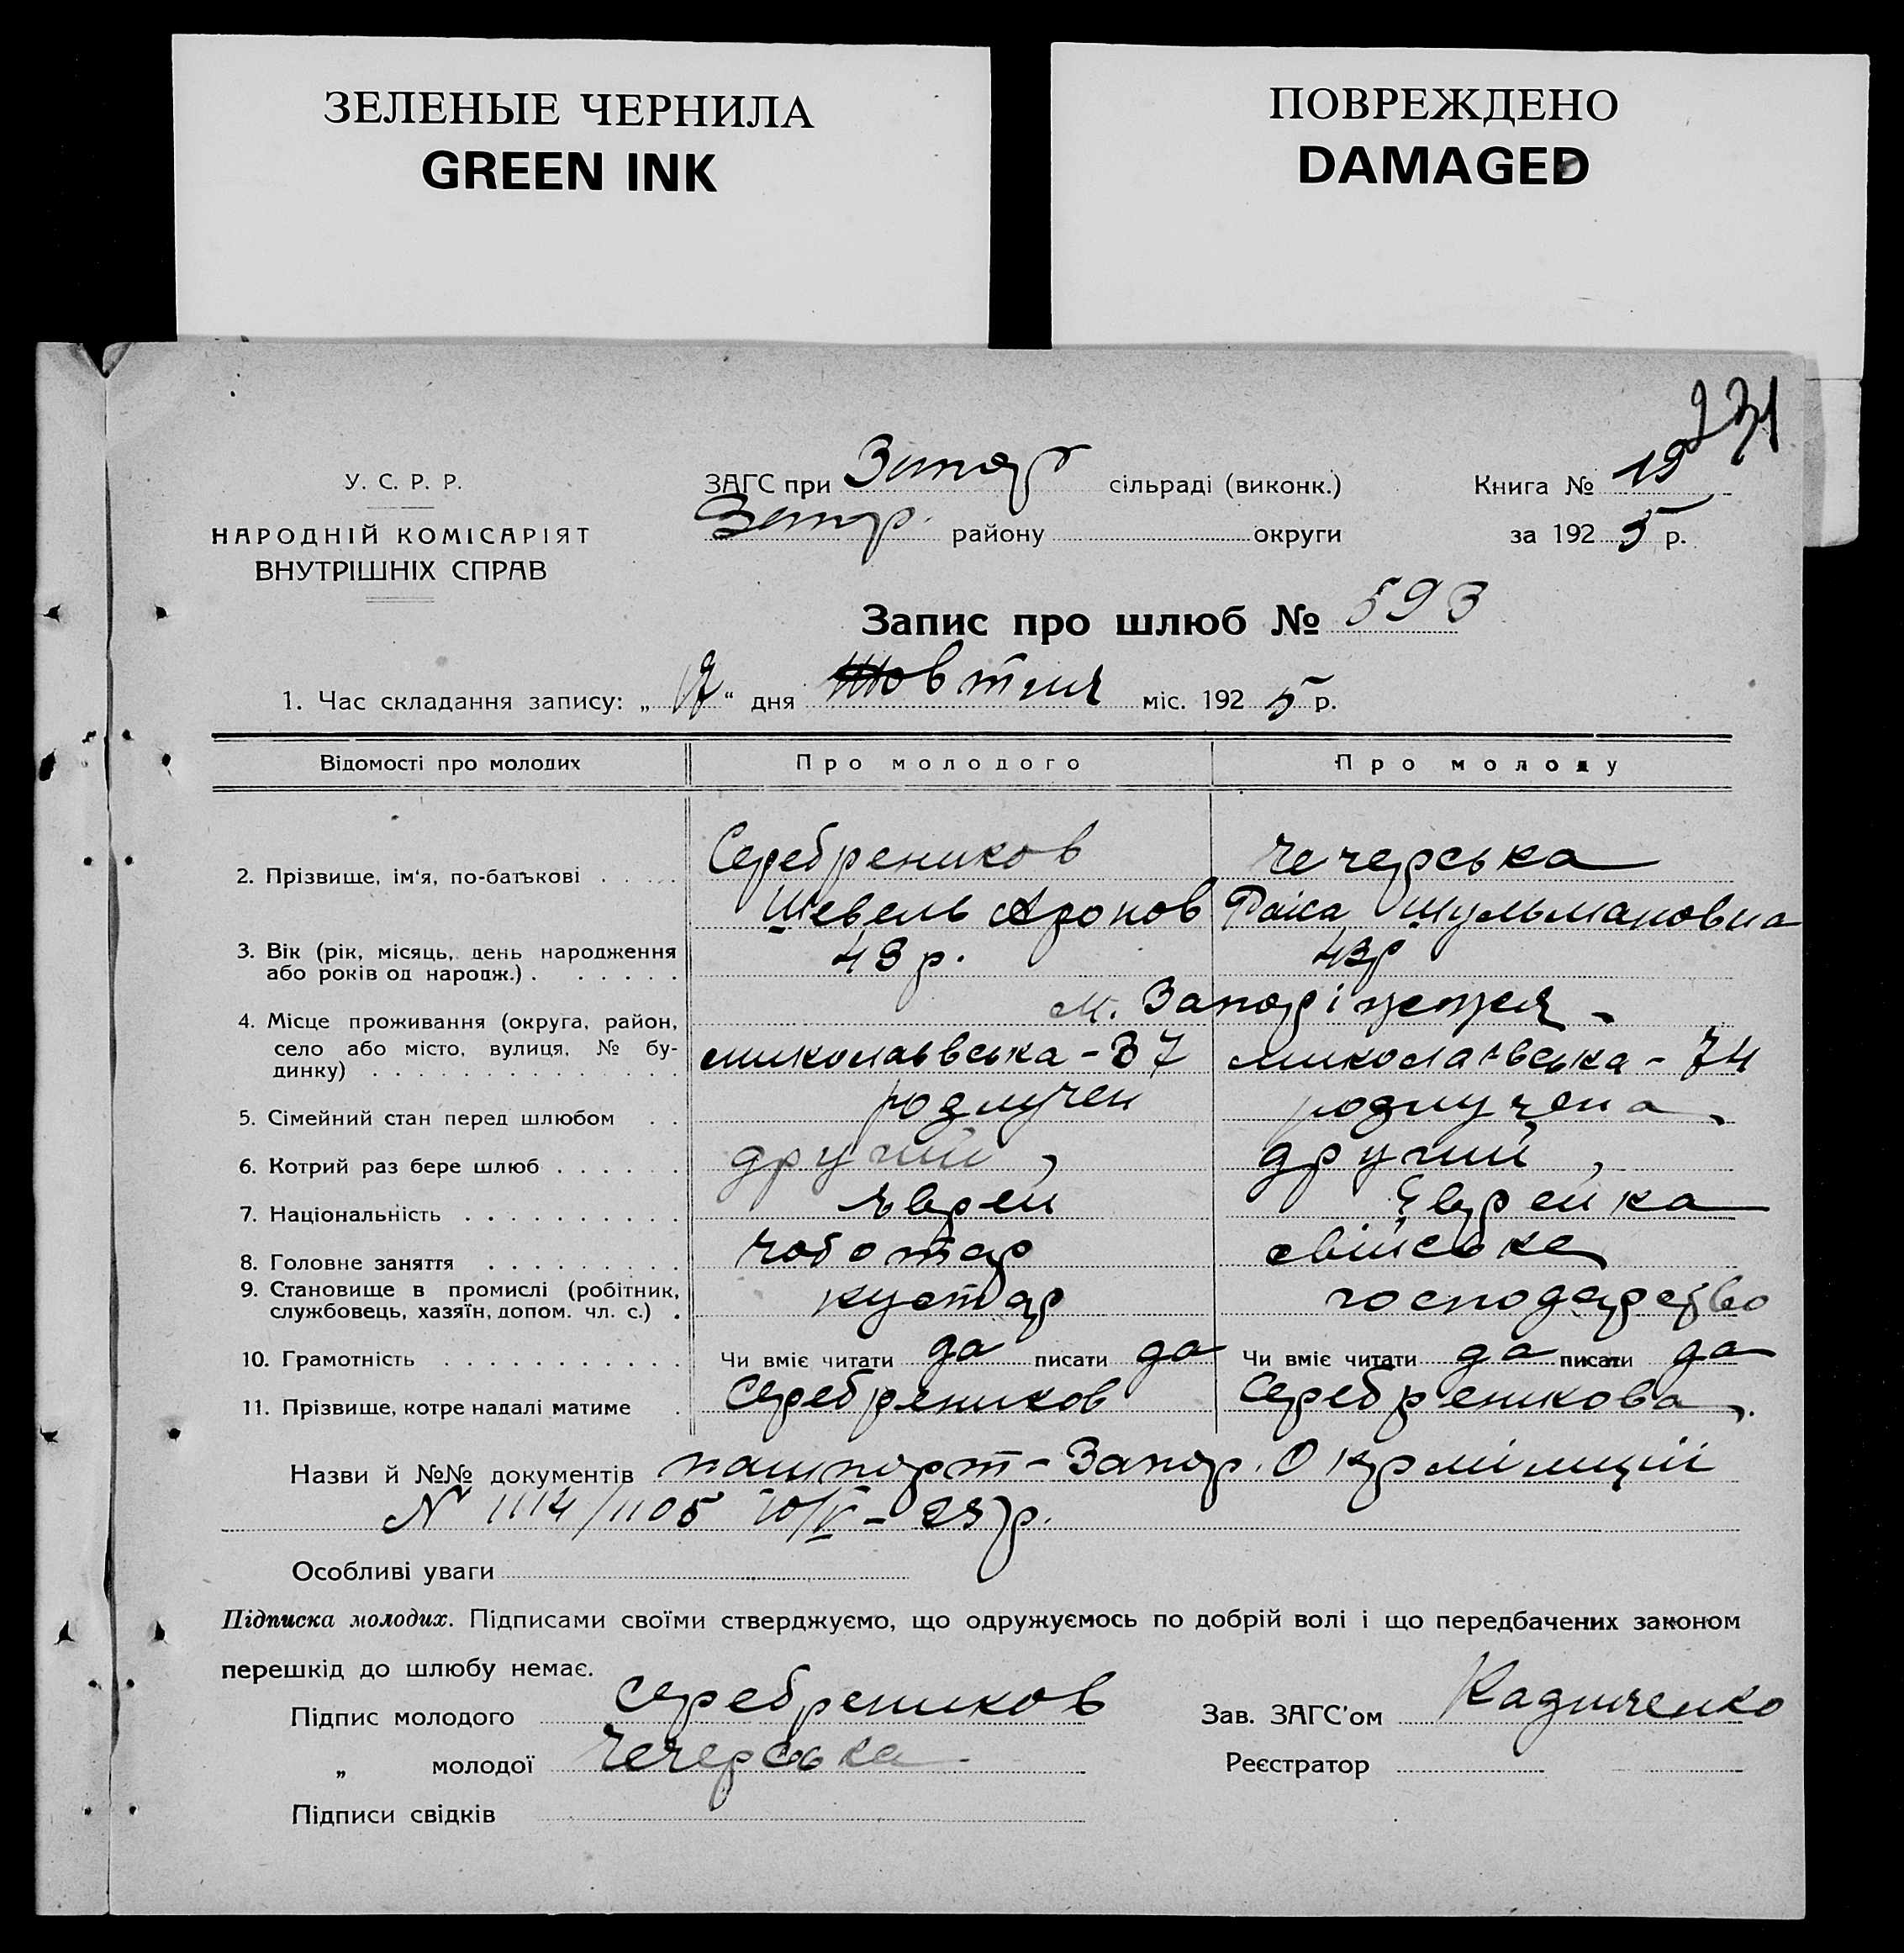 ЗЕЛЕНЫЕ ЧЕРНИЛА
GREEN INK
ПОВРЕЖДЕНО
DAMAGED
231
У. С. Р. Р.
НАРОДНІЙ КОМІСАРІЯТ
ВНУТРІШНІХ СПРАВ
ЗАГС при Запор сільраді (виконк.)
Запор. району округи
Книга № 19
за 1925 р.
Запис про шлюб № 593
1. Час складання запису: „ “ дня Жовтня міс. 1925 р.
Відомості про молодих Про молодого Про молоду
2. Прізвище, ім'я, по-батькові Серебреников Чечерська
Шевель Аронов Шульмановна
3. Вік (рік, місяць, день народження або років од народж.) 49 р. 43р
м. Запоріжжя
4. Місце проживання (округа, район, село або місто, вулиця, № будинку) миколаєвська - 37 миколаєвська - 74
5. Сімейний стан перед шлюбом розлучен розлучена
6. Котрий раз бере шлюб другий, другий,
7. Національність єврей Єврейка
8. Головне заняття чоботар свійське
9. Становище в промислі (робітник, службовець, хазяїн, допом. чл. с.) кустар господарство
10. Грамотність Чи вміє читати да писати да Чи вміє читати да писати да
11. Прізвище, котре надалі матиме Серебреников Серебреникова
Назви й №№ документів пашпорт - Запор. Окрміліції
N 1114/1105 10/IV - 23 р.
Особливі уваги
Підписка молодих. Підписами своїми стверджуємо, що одружуємось по добрій волі і що передбачених законом
перешкід до шлюбу немає.
Підпис молодого Серебреников Зав. ЗАГС'ом
„ молодої Чечерська Реєстратор
Підписи свідків